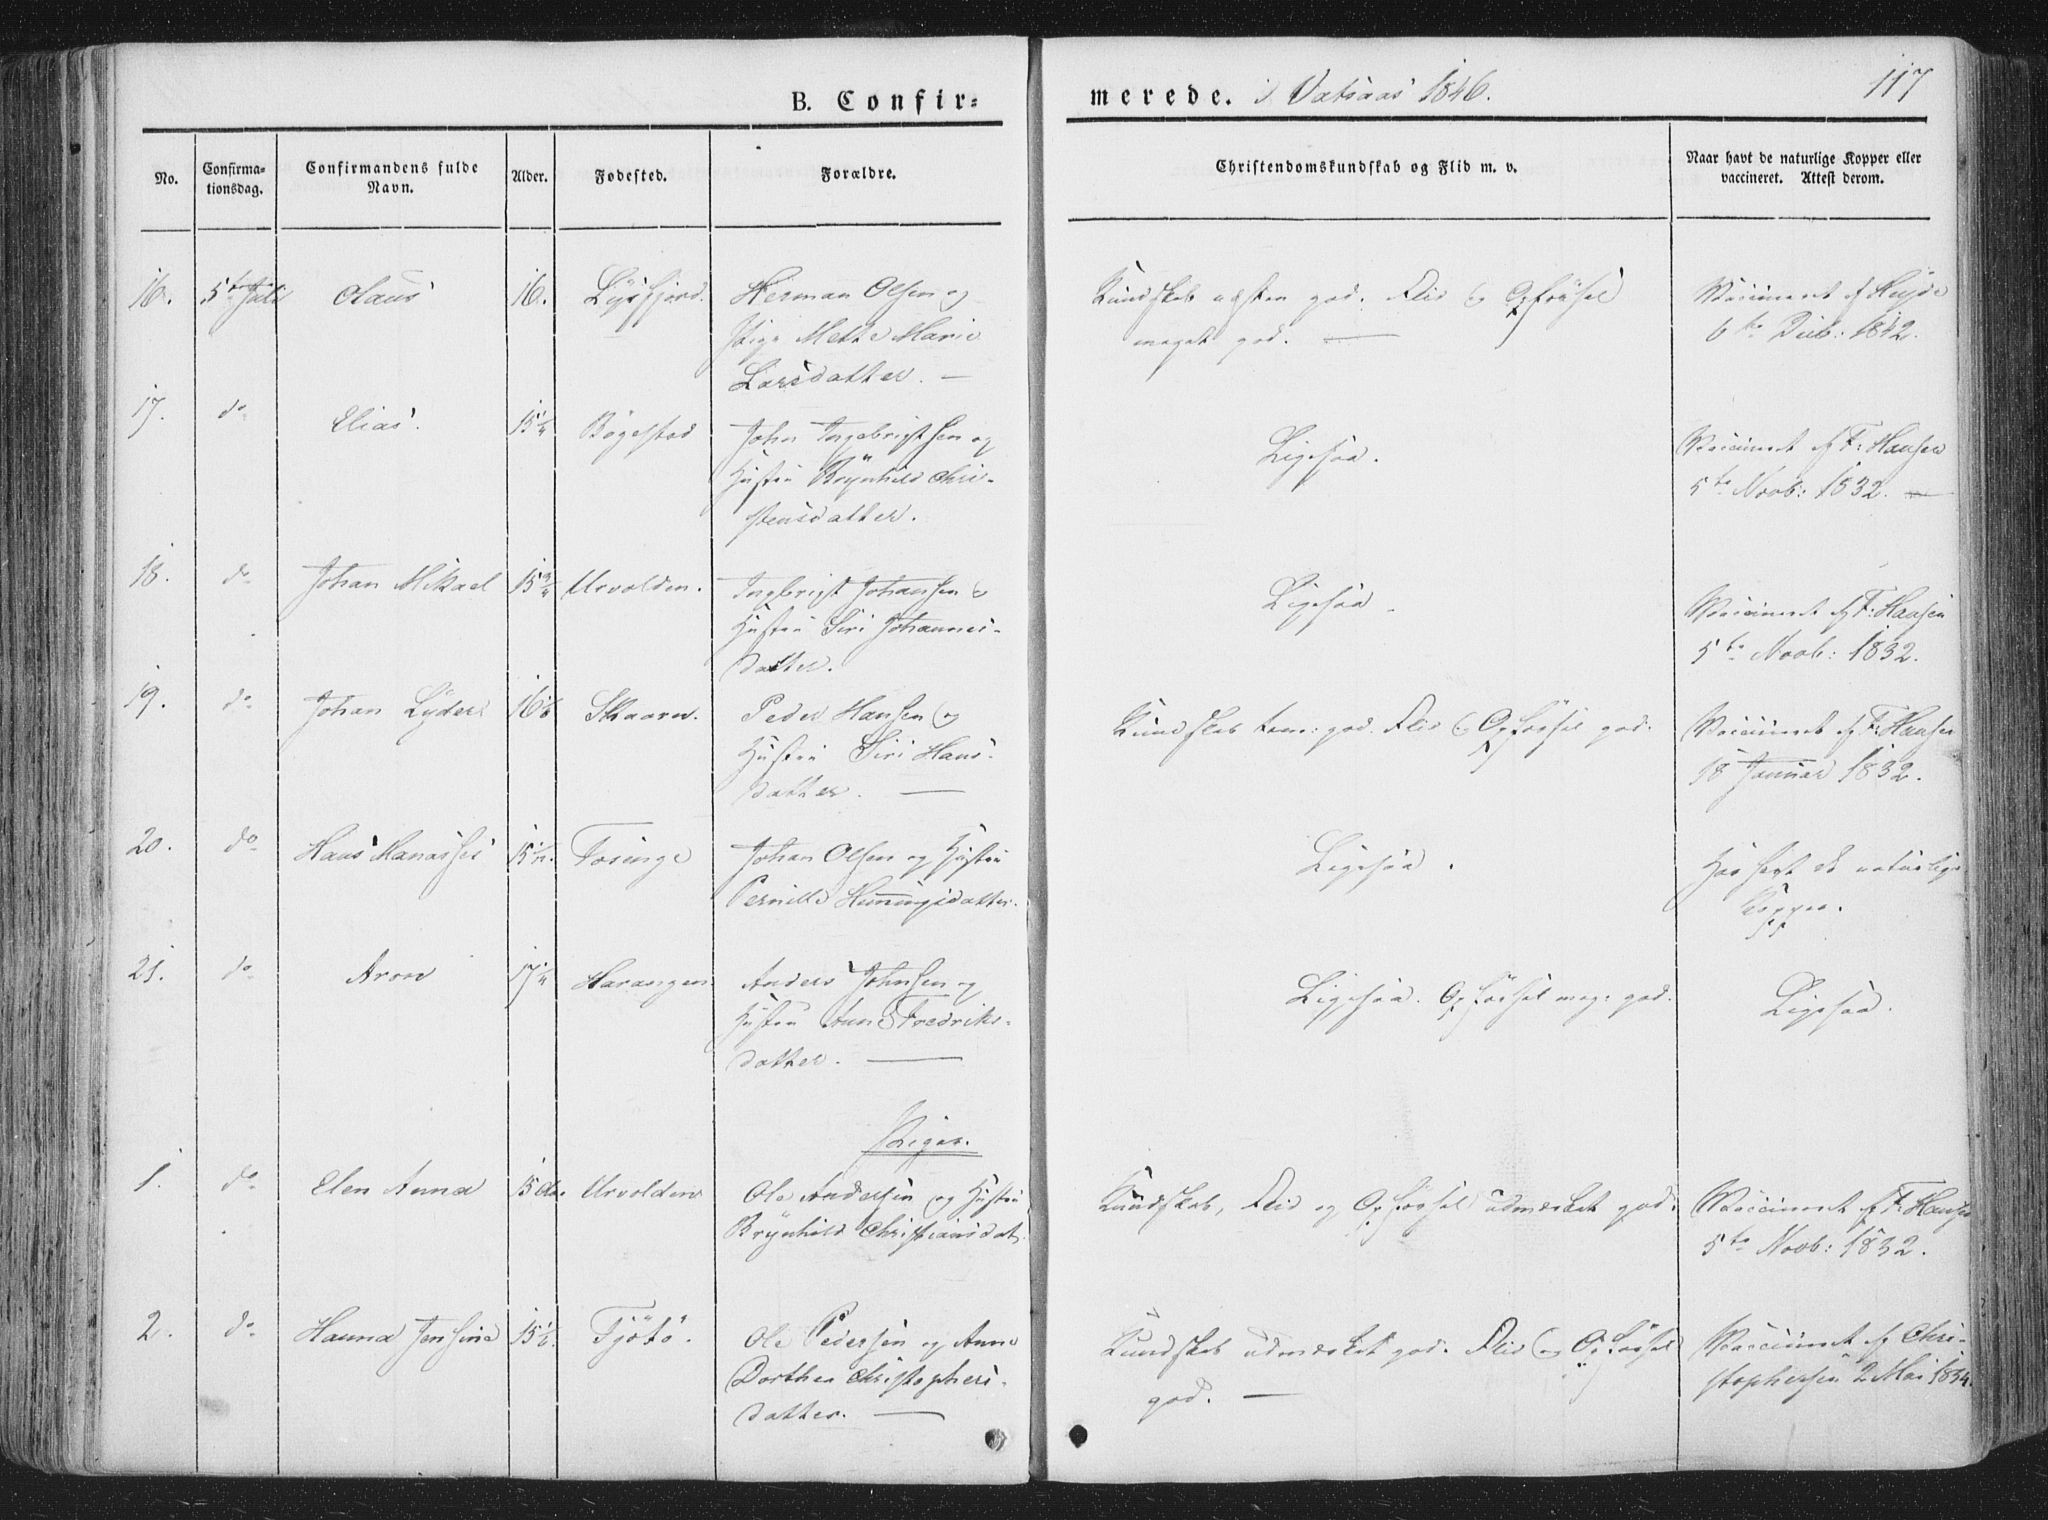 B. Confir=
merede. i Vatsaas 1846.
117
No.
Confirma-
tionsdag.
Confirmandens fulde
Navn.
Alder.
Fødested.
Forældre.
Christendomskundskab og Flid m. v.
Naar havt de naturlige Kopper eller
vaccineret. Attest derom.
16. 5te Juli Olaus 16. Herman Olsen og
Pige Mette Marie
Larsdatter. —
Kundskab næsten god. Flid og Opførsel
meget god. —
Vaccineret af
6te Decb: 1842.
17. do Elias. 15 1/4 Bøgelstad John Ingebrigtsen og
Hustru Brynhild Chri-
stensdatter.
Ligesaa.
Vaccineret af F: Hansen
5te Novb: 1832. —
18. do Johan Mikael 15 3/4 Urvolden. Ingbrigt Johansen og
Hustru Siri Johannes-
datter.
Ligesaa.
Vaccineret af F: Hansen
5te Novb: 1832.
19. do Johan Lyder 16 Skaaren. Peder Hansen og
Hustru Siri Hans-
datter. —
Kundskab tem: god. Flid og Opførsel god.
Vaccineret af F: Hansen
18 Januar 1832.
20. do Hans Manasses 15 1/2. Tosinge Johan Olsen og Hustru
Pernille Henningsdatter.
Ligesaa.
Har havt de naturlige
Kopper.
21. do Aron 17 1/4 Harangen Anders Johnsen og
Hustru Anne Fredriks-
datter. —
Ligesaa. Opførsel meg: god.
Ligesaa.
Piger.
1. do Elen Anna 15 Urvolden Ole Andersen og Hustru
Brynhild Christiansdat.
Kundskab, Flid og Opførsel udmærket god.
Vaccineret af F: Hansen
5te Novb: 1832.
2. do Hanna Jensine 15 Tjøtø. Ole Pedersen og Anne
Dorthea Christophers-
datter. —
Kundskab udmærket god. Flid og Opførsel
god. —
Vaccineret af Chri-
stophersen 2 Mai 1834.